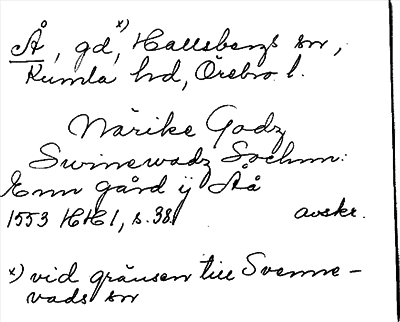 Å, gd, x) Hallsbergs sn,
Kumla hd, Örebro l.
Närike Godz
Swinewadz Sochnn:
Enn gård ÿ Åå
1553 HH 1, s. 38. avskr.
x) vid gränsen till Svenne-
vads sn